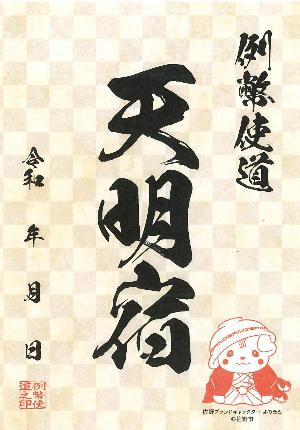 例幣使道
天明宿
令和 年 月 日
例幣使
道之印
佐野ブランドキャラクター さのまる
©佐野市